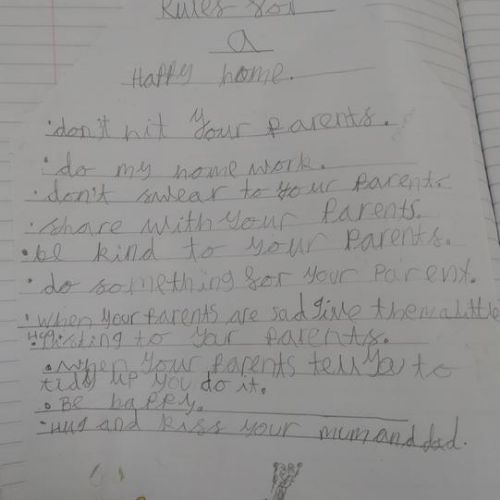 Rules for
a
Happy home.
·don't hit your parents.
·do my home work.
·don't swear to your parents.
·share with your parents.
·be kind to your parents.
·do something for your parent.
·when your parents are sad give them a little
hug.
·listing to your parents.
·when your parents tell you to
tidy up you do it.
·Be happy.
·Hug and kiss your mum and dad.